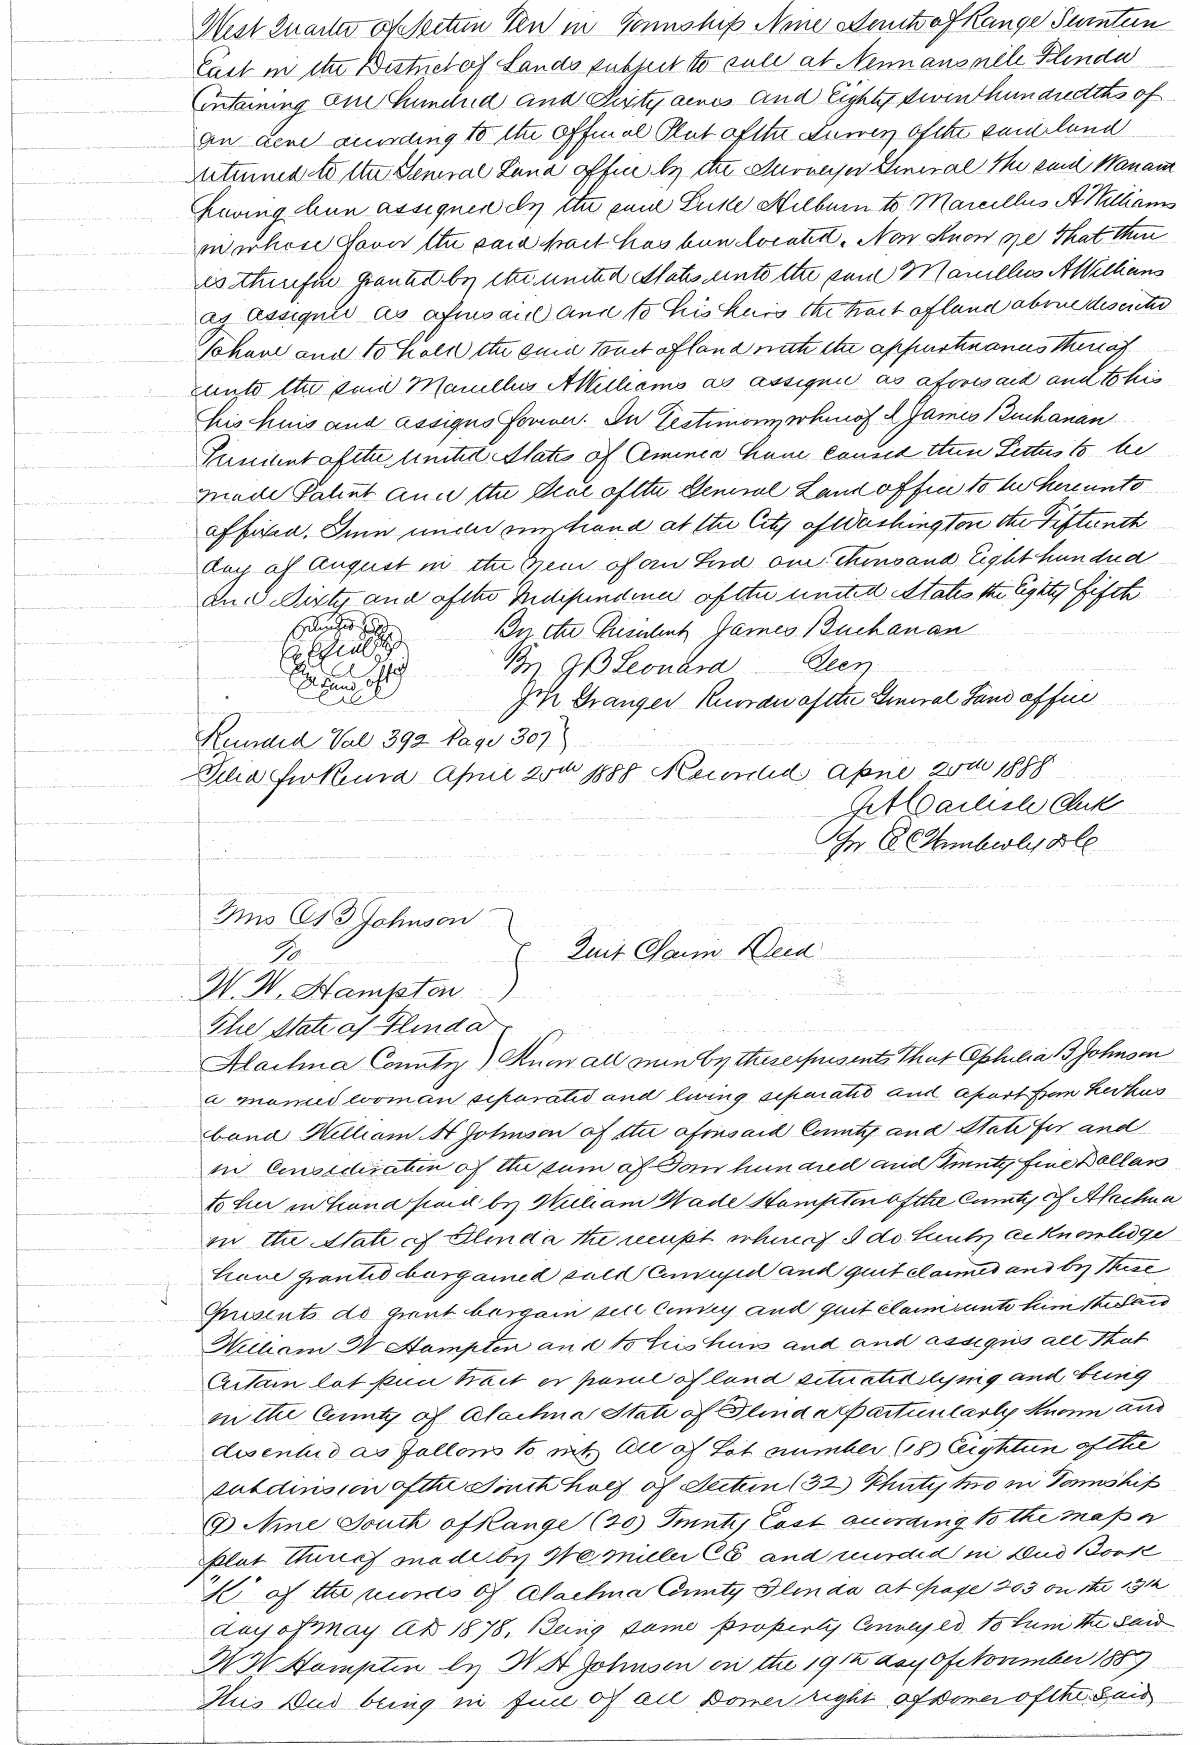 West Quarter of Section Ten in Township Nine South of Range Seventeen
East in the District of Lands subject to sale at Newnansville Florida
Containing one hundred and Sixty acres and Eighty seven hundredths of
an acre according to the official Plat of the Survey of the said land
returned to the General Land office by the Surveyor General the said Warrant
having been assigned by the said Luke Hilburn to Marcellus A Williams
in whose favor the said tract has been located. Now Know ye That there
is therefore granted by the united States unto the said Marcellus A Williams
as assignee as aforesaid and to his heirs the tract of land above described
To have and to hold the said tract of land with the appurtenances thereof
unto the said Marcellus A Williams as assignee as aforesaid and to his
his heirs and assigns forever. In Testimony whereof I James Buchanan
President of the United States of America have caused these Letters to be
made Patent and the Seal of the General Land office to be hereunto
affixed. Given under my hand at the City of Washington the Fifteenth
day of August in the Year of our Lord one thousand Eight hundred
and Sixty and of the Independence of the united States the Eighty fifth
By the President James Buchanan
By J B Leonard Secy
J N Granger Recorder of the General Land office
Recorded Vol 392 Page 307
Filed for Record April 20th 1888 Recorded April 20th 1888
J A Carlisle Clerk
Per
Mrs O B Johnson
To
Quit Claim Deed
W. W. Hampton
The State of Florida
Alachua County ) Know all men by these presents That Ophelia B Johnson
a married woman separated and living separated and apart from her hus
band William H Johnson of the aforesaid County and State for and
in Consideration of the sum of Four hundred and Twenty five Dollars
to her in hand paid by William Wade Hampton of the County of Alachua
in the State of Florida the receipt whereof I do hereby acknowledge
have granted bargained sold Conveyed and quit claimed and by These
presents do grant bargain sell Convey and quit claim unto him the said
William W Hampton and to his heirs and and assigns all That
Certain lot piece tract or parcel of land situated lying and being
in the County of Alachua State of Florida particularly Known and
described as follows to wit, All of Lot number (18) Eighteen of the
subdivision of the South half of Section (32) Thirty two in Township
(9) Nine South of Range (20) Twenty East according to the map or
plat thereof made by W C Miller CE and recorded in Deed Book
"K" of the records of Alachua County Florida at page 203 on the 13th
day of May AD 1878. Being same property Conveyed to him the said
W W Hampton by W H Johnson on the 19th day of November 1887
This Deed being in full of all Dower right of Dower of the said